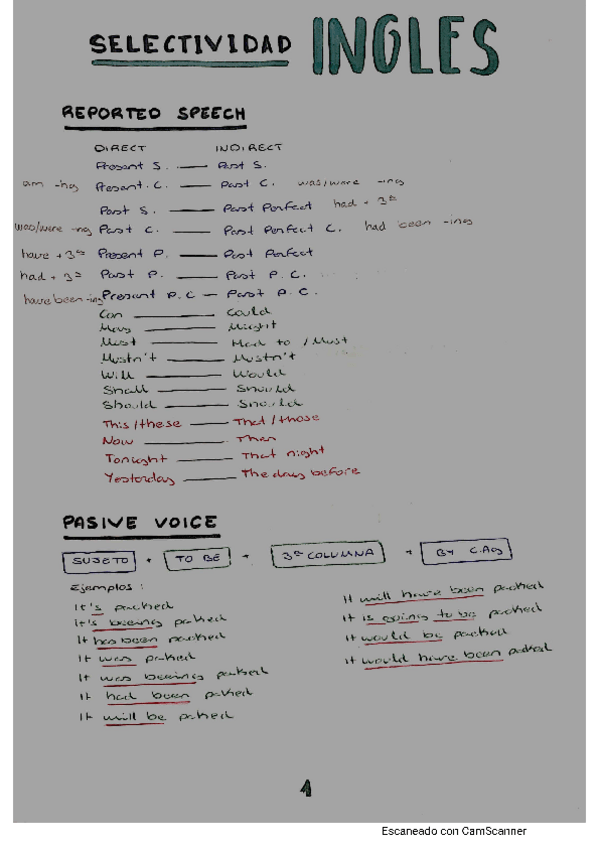 SELECTIVIDAD INGLES
REPORTED SPEECH
DIRECT INDIRECT
Present S. — Past S.
am -ing Present. C. — Past C. was/were -ing
Past S. — Past Perfect had + 3ª
was/were -ng Past C. — Past Perfect C. had been -ing
have + 3ª Present P. — Past Perfect
had + 3ª Past P. — Past P. C.
have been -ing Present P. C — Past P. C.
Can — Could
May — Might
Must — Had to / Must
Mustn't — Mustn't
Will — Would
Shall — Should
Should — Should
This/these — That/those
Now — Then
Tonight — That night
Yesterday — The day before
PASIVE VOICE
SUJETO + TO BE + 3ª COLUMNA + BY C.Ag
Ejemplos:
It's packed
It's beeing packed
It has been packed
It was packed
It was beeing packed
It had been packed
It will be packed
It will have been packed
It is going to be packed
It would be packed
It would have been packed
1
Escaneado con CamScanner